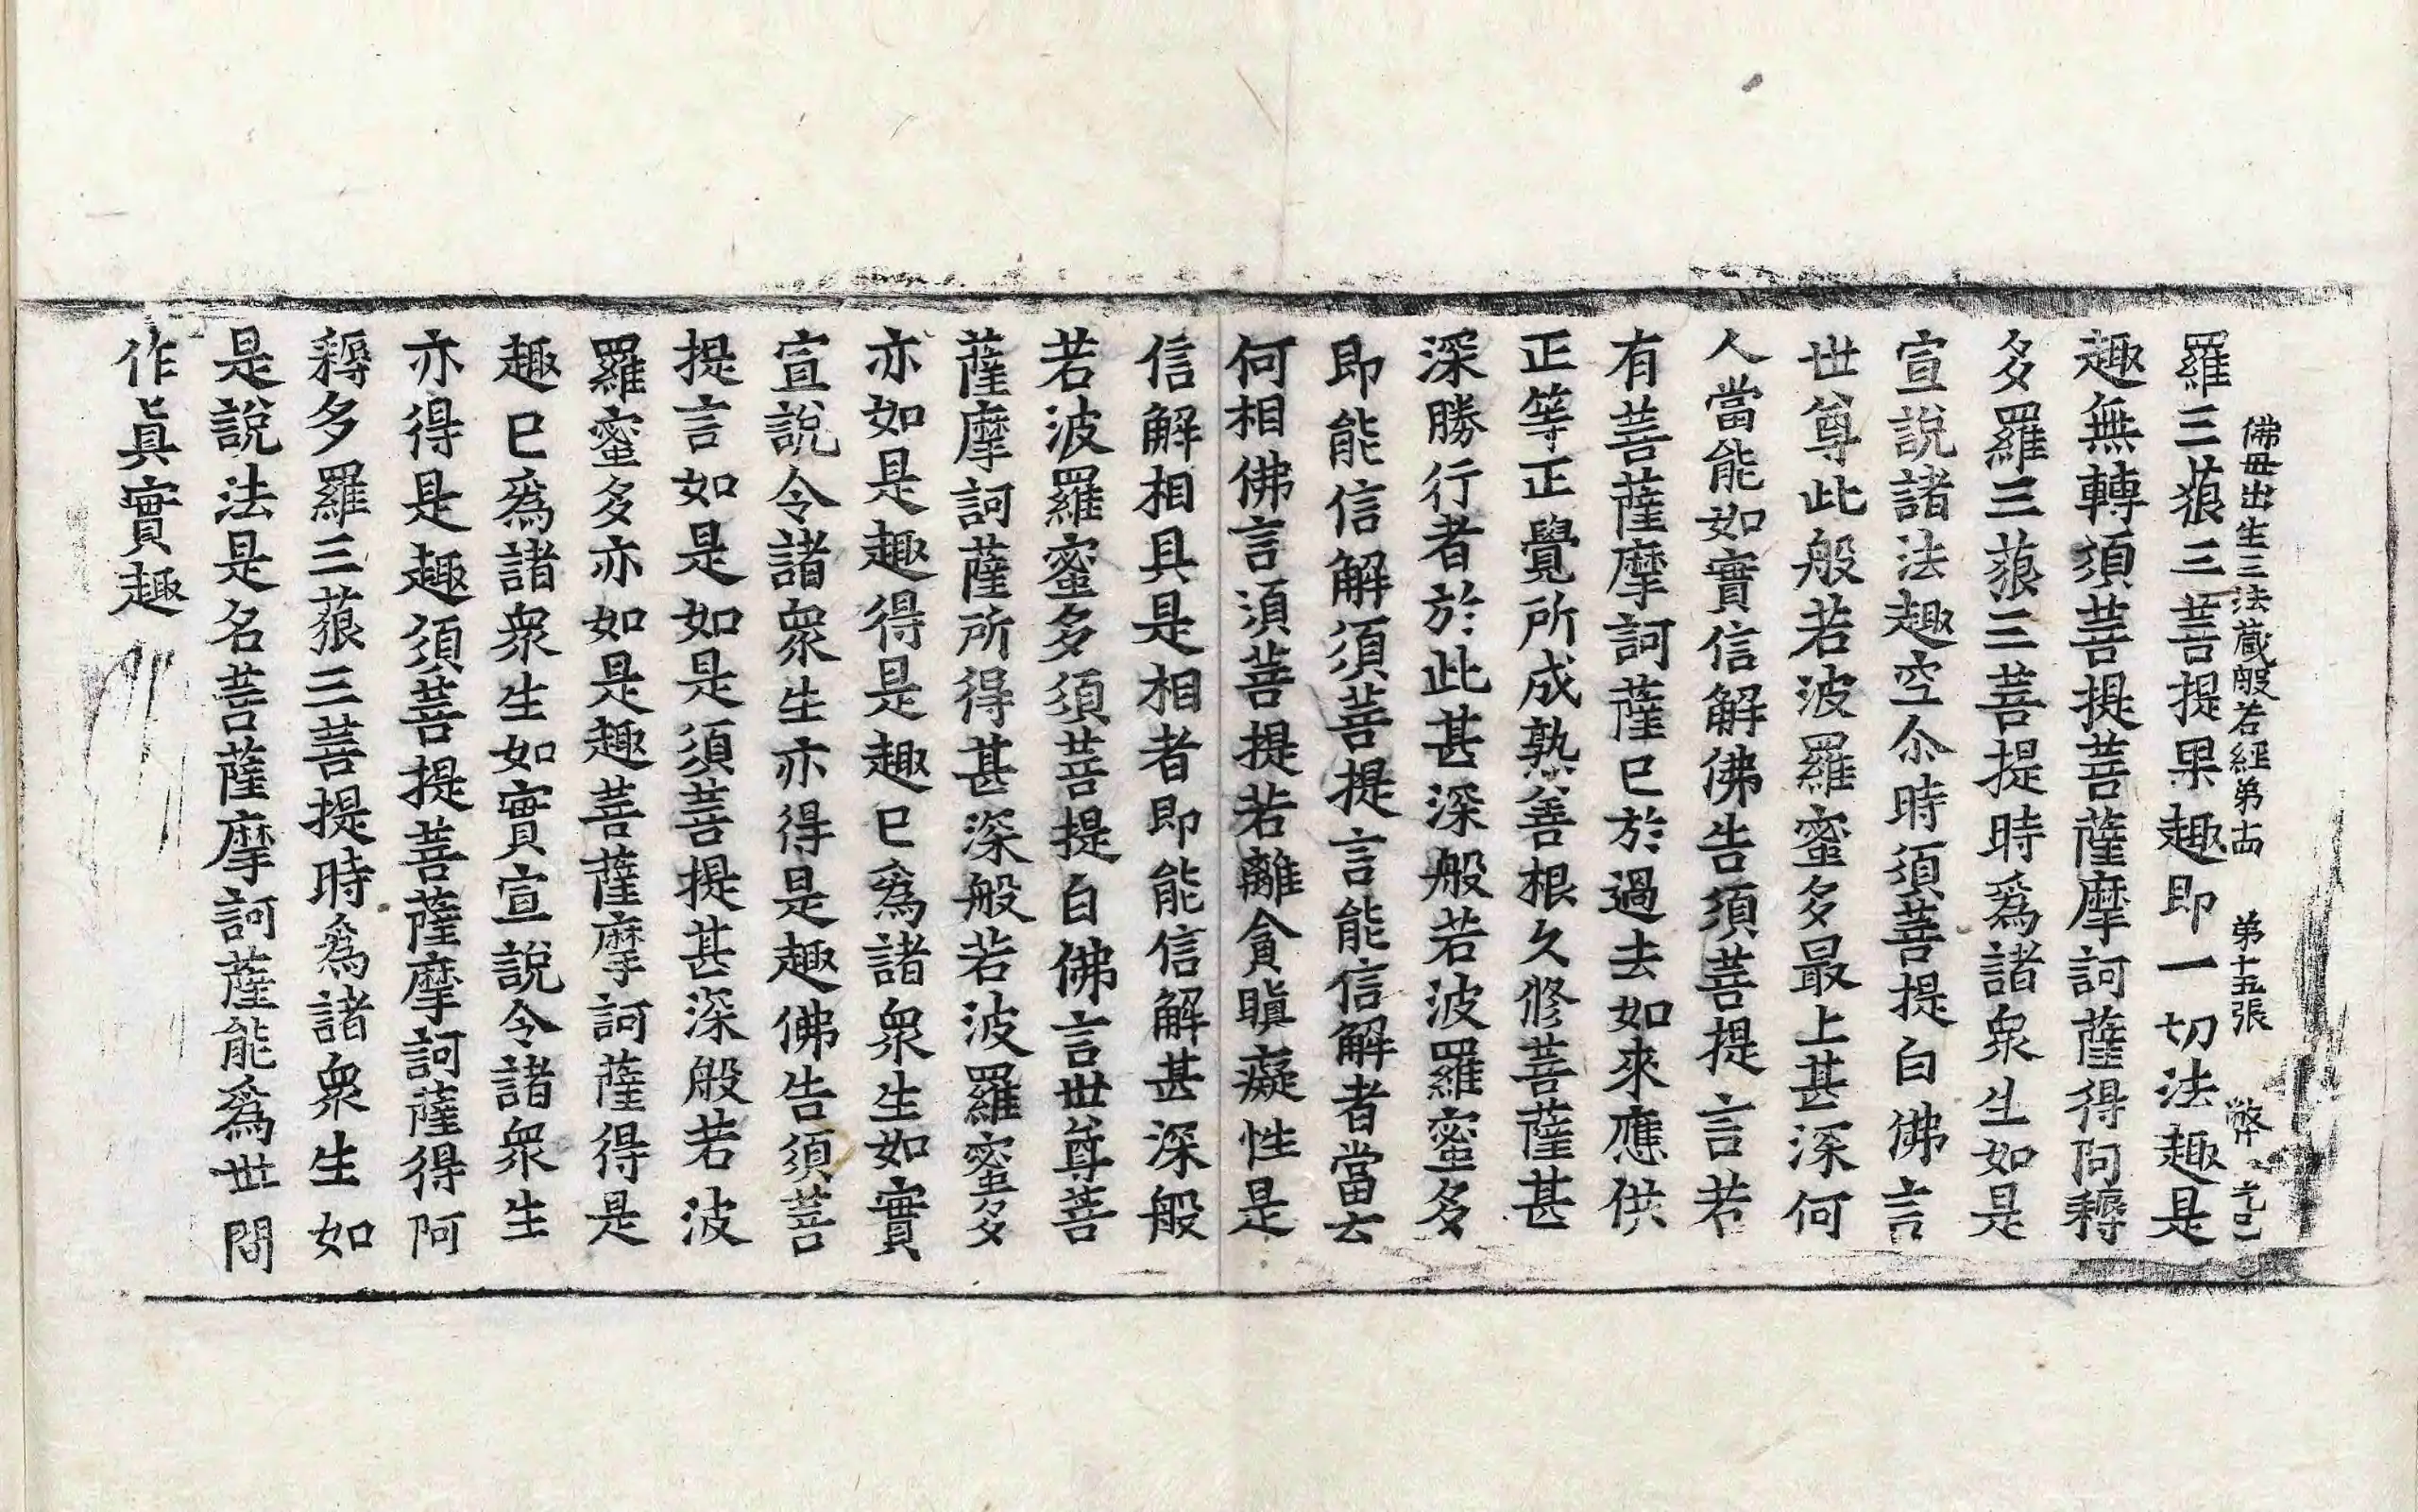 佛毋出生三法藏般若經第十四 第十五張 弊
羅三藐三菩提果趣即一切法趣是
趣無轉須菩提菩薩摩訶薩得阿耨
多羅三藐三菩提時爲諸衆生如是
宣說諸法趣空尒時須菩提白佛言
世尊此般若波羅蜜多最上甚深何
人當能如實信解佛告須菩提言若
有菩薩摩訶薩已於過去如來應供
正等正覺所成熟善根久修菩薩甚
深勝行者於此甚深般若波羅蜜多
即能信解須菩提言能信解者當云
何相佛言須菩提若離貪瞋癡性是
信解相具是相者即能信解甚深般
若波羅蜜多須菩提白佛言世尊菩
薩摩訶薩所得甚深般若波羅蜜多
亦如是趣得是趣已爲諸衆生如實
宣說令諸衆生亦得是趣佛告須菩
提言如是如是須菩提甚深般若波
羅蜜多亦如是趣菩薩摩訶薩得是
趣已爲諸衆生如實宣說令諸衆生
亦得是趣須菩提菩薩摩訶薩得阿
耨多羅三藐三菩提時爲諸衆生如
是說法是名菩薩摩訶薩能爲世間
作眞實趣